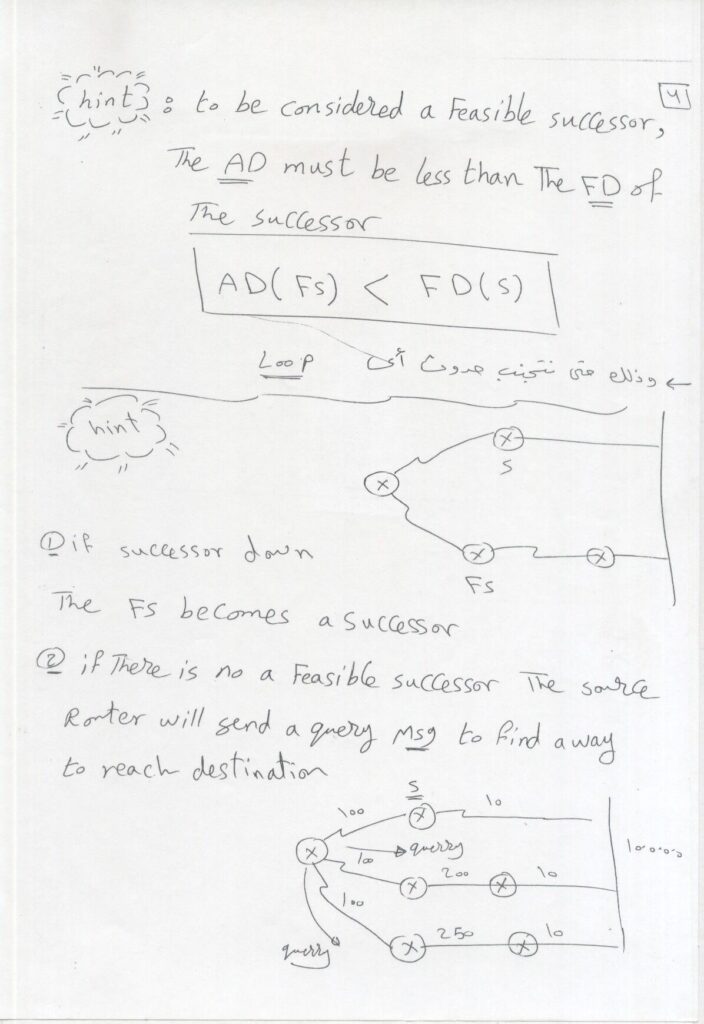 4
hint : to be considered a Feasible successor,
The AD must be less than The FD of
The successor
AD(Fs) < FD(s)
← وذلك حتى نتجنب حدوث أى Loop
hint
S
① if successor down
FS
The FS becomes a successor
② if There is no a Feasible successor The source
Router will send a query Msg to find a way
to reach destination
S
100 10
querry
100 200 10
10.0.0.0
100
250 10
querry